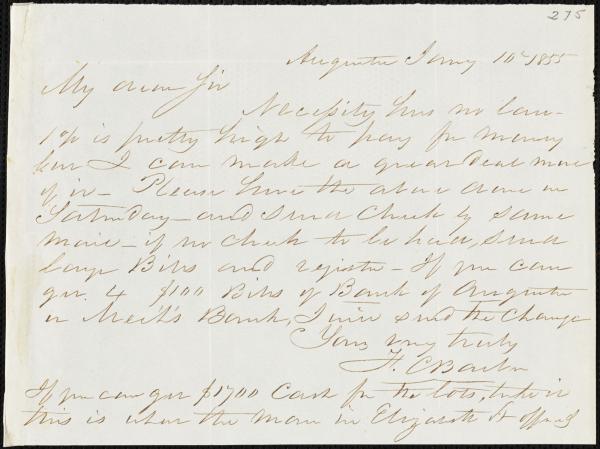 275
Augusta Jany 10th 1855
My dear Sir
Necessity has no law—
1% is pretty high to pay for money
but I can make a great deal more
of it— Please have the above done on
Saturday— and send check by same
mail— if no check to be had, send
large Bills and register— If you can
get 4 $100 Bills of Bank of Augusta
or Mech's Bank, I will send the change
Yours very truly
F. C. Barber
If you can get $1700 Cash for the lots, take it
this is what the man in Elizabeth St offered